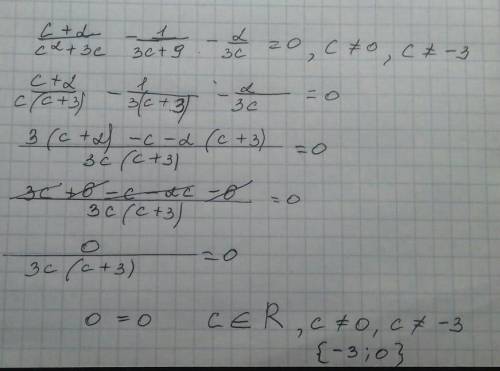 (c+2)/(c²+3c) - 1/(3c+9) - 2/(3c) = 0, c ≠ 0, c ≠ -3
(c+2)/(c(c+3)) - 1/(3(c+3)) - 2/(3c) = 0
(3(c+2) - c - 2(c+3))/(3c(c+3)) = 0
(3c+6-c-2c-6)/(3c(c+3)) = 0
0/(3c(c+3)) = 0
0 = 0 c ∈ R, c ≠ 0, c ≠ -3
{-3; 0}